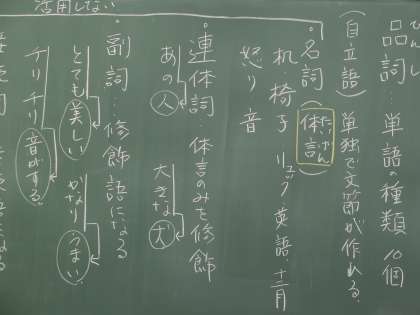 活用しない
品詞…単語の種類 10個
ひんし
(自立語) 単独で文節が作れる。
・名詞(体言)
たいげん
机・椅子 リュク・英語・十二月
怒り 音
・連体詞…体言のみを修飾
あの人 大きな犬
・副詞…修飾語になる
とても美しい かなりうまい。
チリチリ音がする。